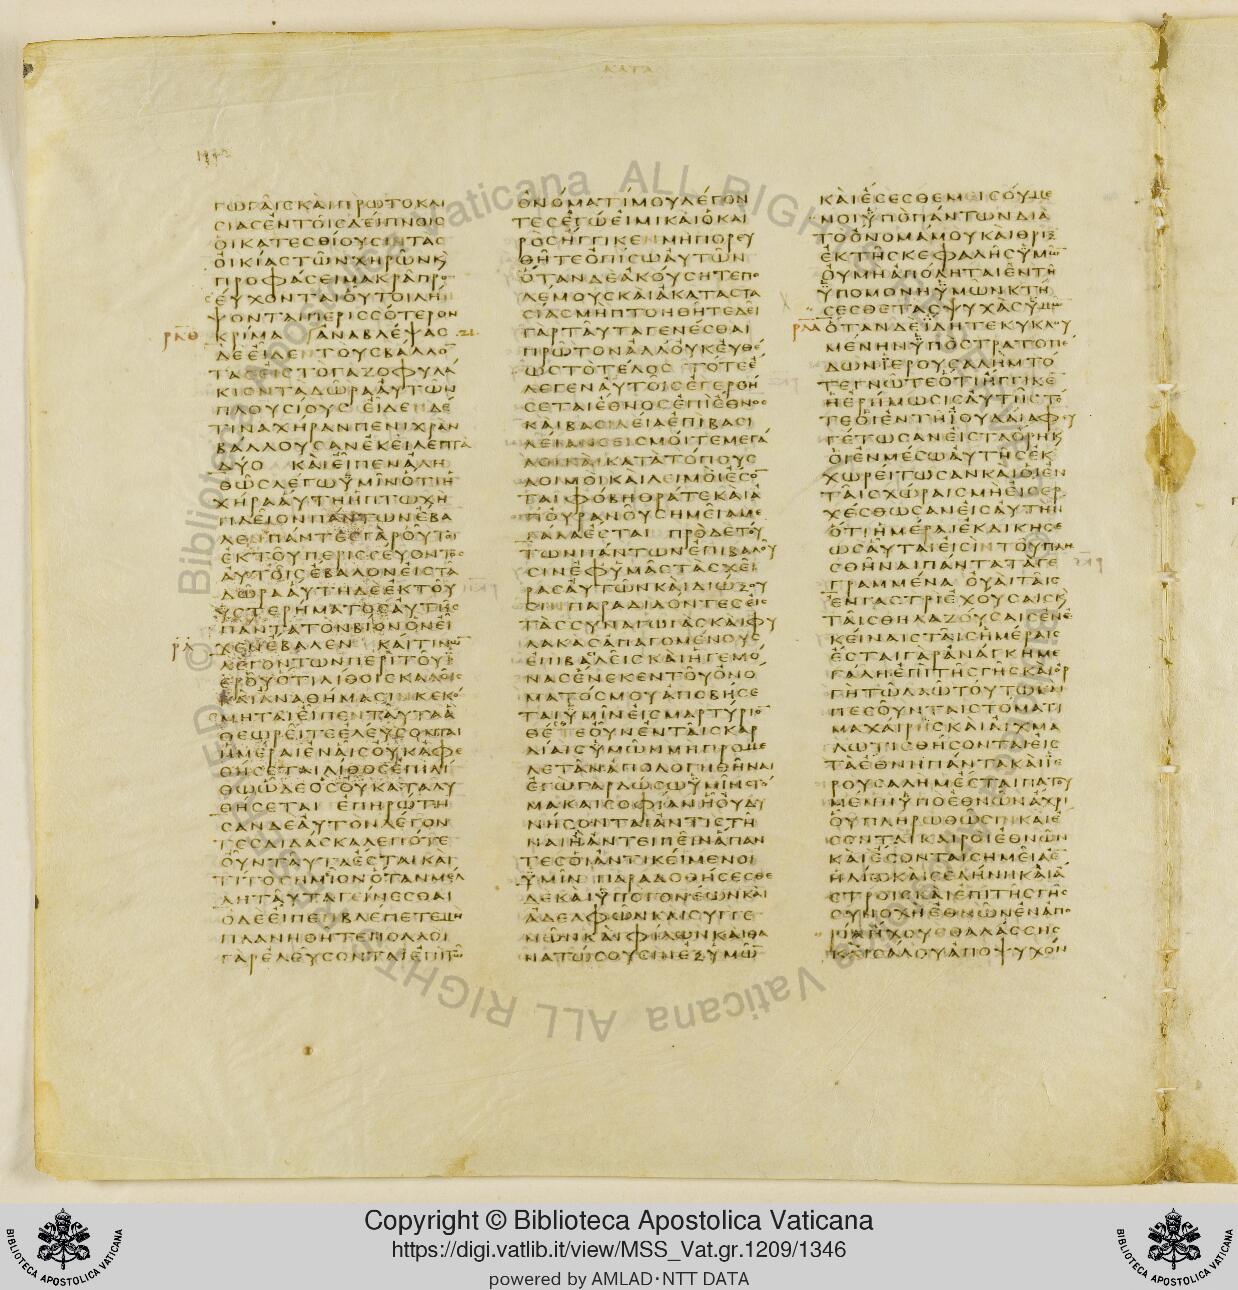 ΚΑΤΑ
ΓΩΓΑΙΣΚΑΙΠΡΩΤΟΚΛΙ
ΣΙΑΣΕΝΤΟΙΣΔΕΙΠΝΟΙΣ
ΟΙΚΑΤΕΣΘΙΟΥΣΙΝΤΑΣ
ΟΙΚΙΑΣΤΩΝΧΗΡΩΝΚ
ΠΡΟΦΑΣΕΙΜΑΚΡΑΠΡΟ
ΣΕΥΧΟΝΤΑΙΟΥΤΟΙΛΗ
ΨΟΝΤΑΙΠΕΡΙΣΣΟΤΕΡΟΝ
ΡΛΘ ΚΡΙΜΑ ΑΝΑΒΛΕΨΑΣ
ΔΕΕΙΔΕΝΤΟΥΣΒΑΛΛΟ
ΤΑΣΕΙΣΤΟΓΑΖΟΦΥΛΑ
ΚΙΟΝΤΑΔΩΡΑΑΥΤΩΝ
ΠΛΟΥΣΙΟΥΣ ΕΙΔΕΝΔΕ
ΤΙΝΑΧΗΡΑΝΠΕΝΙΧΡΑΝ
ΒΑΛΛΟΥΣΑΝΕΚΕΙΛΕΠΤΑ
ΔΥΟ ΚΑΙΕΙΠΕΝΑΛΗ
ΘΩΣΛΕΓΩΥΜΙΝΟΤΙΗ
ΧΗΡΑΑΥΤΗΗΠΤΩΧΗ
ΠΛΕΙΟΝΠΑΝΤΩΝΕΒΑ
ΛΕΝΠΑΝΤΕΣΓΑΡΟΥΤΟΙ
ΕΚΤΟΥΠΕΡΙΣΣΕΥΟΝΤΟΣ
ΑΥΤΟΙΣΕΒΑΛΟΝΕΙΣΤΑ
ΔΩΡΑΑΥΤΗΔΕΕΚΤΟΥ
ΥΣΤΕΡΗΜΑΤΟΣΑΥΤΗΣ
ΠΑΝΤΑΤΟΝΒΙΟΝΟΝΕΙ
ΡΜ ΧΕΝΕΒΑΛΕΝ ΚΑΙΤΙΝΩ
ΛΕΓΟΝΤΩΝΠΕΡΙΤΟΥΙ
ΕΡΟΥΟΤΙΛΙΘΟΙΣΚΑΛΟΙΣ
ΚΑΙΑΝΑΘΗΜΑΣΙΝΚΕΚΟ
ΜΗΤΑΙΕΙΠΕΝΤΑΥΤΑΑ
ΘΕΩΡΕΙΤΕΕΛΕΥΣΟΝΤΑΙ
ΗΜΕΡΑΙΕΝΑΙΣΟΥΚΑΦΕ
ΘΗΣΕΤΑΙΛΙΘΟΣΕΠΙΛΙ
ΘΩΩΔΕΟΣΟΥΚΑΤΑΛΥ
ΘΗΣΕΤΑΙ ΕΠΗΡΩΤΗ
ΣΑΝΔΕΑΥΤΟΝΛΕΓΟΝ
ΤΕΣΔΙΔΑΣΚΑΛΕΠΟΤΕ
ΟΥΝΤΑΥΤΑΕΣΤΑΙΚΑΙ
ΤΙΤΟΣΗΜΙΟΝΟΤΑΝΜΕΛ
ΛΗΤΑΥΤΑΓΕΙΝΕΣΘΑΙ
ΟΔΕΕΙΠΕΝΒΛΕΠΕΤΕΜΗ
ΠΛΑΝΗΘΗΤΕΠΟΛΛΟΙ
ΓΑΡΕΛΕΥΣΟΝΤΑΙΕΠΙΤΩ
ΟΝΟΜΑΤΙΜΟΥΛΕΓΟΝ
ΤΕΣΕΓΩΕΙΜΙΚΑΙΟΚΑΙ
ΡΟΣΗΓΓΙΚΕΝΜΗΠΟΡΕΥ
ΘΗΤΕΟΠΙΣΩΑΥΤΩΝ
ΟΤΑΝΔΕΑΚΟΥΣΗΤΕΠΟ
ΛΕΜΟΥΣΚΑΙΑΚΑΤΑΣΤΑ
ΣΙΑΣΜΗΠΤΟΗΘΗΤΕΔΕΙ
ΓΑΡΤΑΥΤΑΓΕΝΕΣΘΑΙ
ΠΡΩΤΟΝΑΛΛΟΥΚΕΥΘΕ
ΩΣΤΟΤΕΛΟΣ ΤΟΤΕΕ
ΛΕΓΕΝΑΥΤΟΙΣΕΓΕΡΘΗ
ΣΕΤΑΙΕΘΝΟΣΕΠΙΕΘΝΟΣ
ΚΑΙΒΑΣΙΛΕΙΑΕΠΙΒΑΣΙ
ΛΕΙΑΝΣΕΙΣΜΟΙΤΕΜΕΓΑ
ΛΟΙΚΑΙΚΑΤΑΤΟΠΟΥΣ
ΛΟΙΜΟΙΚΑΙΛΕΙΜΟΙΕΣΟ
ΤΑΙΦΟΒΗΘΡΑΤΕΚΑΙΑ
ΠΟΥΡΑΝΟΥΣΗΜΕΙΑΜΕ
ΓΑΛΑΕΣΤΑΙ ΠΡΟΔΕΤΟΥ
ΤΩΝΠΑΝΤΩΝΕΠΙΒΑΛΟΥ
ΣΙΝΕΦΥΜΑΣΤΑΣΧΕΙ
ΡΑΣΑΥΤΩΝΚΑΙΔΙΩΞΟΥ
ΣΙΝΠΑΡΑΔΙΔΟΝΤΕΣΕΙΣ
ΤΑΣΣΥΝΑΓΩΓΑΣΚΑΙΦΥ
ΛΑΚΑΣΑΠΑΓΟΜΕΝΟΥΣ
ΕΠΙΒΑΣΙΛΕΙΣΚΑΙΗΓΕΜΟ
ΝΑΣΕΝΕΚΕΝΤΟΥΟΝΟ
ΜΑΤΟΣΜΟΥΑΠΟΒΗΣΕ
ΤΑΙΥΜΙΝΕΙΣΜΑΡΤΥΡΙΟ
ΘΕΤΕΟΥΝΕΝΤΑΙΣΚΑΡ
ΔΙΑΙΣΥΜΩΝΜΗΠΡΟΜΕ
ΛΕΤΑΝΑΠΟΛΟΓΗΘΗΝΑΙ
ΕΓΩΓΑΡΔΩΣΩΥΜΙΝΣΤΟ
ΜΑΚΑΙΣΟΦΙΑΝΗΟΥΔΥ
ΝΗΣΟΝΤΑΙΑΝΤΙΣΤΗ
ΝΑΙΗΑΝΤΕΙΠΕΙΝΑΠΑΝ
ΤΕΣΟΙΑΝΤΙΚΕΙΜΕΝΟΙ
ΥΜΙΝ ΠΑΡΑΔΟΘΗΣΕΣΘΕ
ΔΕΚΑΙΥΠΟΓΟΝΕΩΝΚΑΙ
ΑΔΕΛΦΩΝΚΑΙΣΥΓΓΕ
ΝΩΝΚΑΙΦΙΛΩΝΚΑΙΘΑ
ΝΑΤΩΣΟΥΣΙΝΕΞΥΜΩ
ΚΑΙΕΣΕΣΘΕΜΕΙΣΟΥΜΕ
ΝΟΙΥΠΟΠΑΝΤΩΝΔΙΑ
ΤΟΟΝΟΜΑΜΟΥΚΑΙΘΡΙΞ
ΕΚΤΗΣΚΕΦΑΛΗΣΥΜΩ
ΟΥΜΗΑΠΟΛΗΤΑΙΕΝΤΗ
ΥΠΟΜΟΝΗΥΜΩΝΚΤΗ
ΣΕΣΘΕΤΑΣΨΥΧΑΣΥΜΩ
ΡΜΑ ΟΤΑΝΔΕΙΔΗΤΕΚΥΚΛΟΥ
ΜΕΝΗΝΥΠΟΣΤΡΑΤΟΠΕ
ΔΩΝΙΕΡΟΥΣΑΛΗΜΤΟ
ΤΕΓΝΩΤΕΟΤΙΗΓΓΙΚΕ
ΗΕΡΗΜΩΣΙΣΑΥΤΗΣΤΟ
ΤΕΟΙΕΝΤΗΙΟΥΔΑΙΑΦΕΥ
ΓΕΤΩΣΑΝΕΙΣΤΑΟΡΗΚ
ΟΙΕΝΜΕΣΩΑΥΤΗΣΕΚ
ΧΩΡΕΙΤΩΣΑΝΚΑΙΟΙΕΝ
ΤΑΙΣΧΩΡΑΙΣΜΗΕΙΣΕΡ
ΧΕΣΘΩΣΑΝΕΙΣΑΥΤΗΝ
ΟΤΙΗΜΕΡΑΙΕΚΔΙΚΗΣΕ
ΩΣΑΥΤΑΙΕΙΣΙΝΤΟΥΠΛΗ
ΣΘΗΝΑΙΠΑΝΤΑΤΑΓΕ
ΓΡΑΜΜΕΝΑ ΟΥΑΙΤΑΙΣ
ΕΝΓΑΣΤΡΙΕΧΟΥΣΑΙΣΚ
ΤΑΙΣΘΗΛΑΖΟΥΣΑΙΣΕΝΕ
ΚΕΙΝΑΙΣΤΑΙΣΗΜΕΡΑΙΣ
ΕΣΤΑΙΓΑΡΑΝΑΓΚΗΜΕ
ΓΑΛΗΕΠΙΤΗΣΓΗΣΚΑΙΟΡ
ΓΗΤΩΛΑΩΤΟΥΤΩΚΑΙ
ΠΕΣΟΥΝΤΑΙΣΤΟΜΑΤΙ
ΜΑΧΑΙΡΗΣΚΑΙΑΙΧΜΑ
ΛΩΤΙΣΘΗΣΟΝΤΑΙΕΙΣ
ΤΑΕΘΝΗΠΑΝΤΑΚΑΙΙΕ
ΡΟΥΣΑΛΗΜΕΣΤΑΙΠΑΤΟΥ
ΜΕΝΗΥΠΟΕΘΝΩΝΑΧΡΙ
ΟΥΠΛΗΡΩΘΩΣΙΝΚΑΙΕ
ΣΟΝΤΑΙΚΑΙΡΟΙΕΘΝΩΝ
ΚΑΙΕΣΟΝΤΑΙΣΗΜΕΙΑΕ
ΗΛΙΩΚΑΙΣΕΛΗΝΗΚΑΙΑ
ΣΤΡΟΙΣΚΑΙΕΠΙΤΗΣΓΗΣ
ΣΥΝΟΧΗΕΘΝΩΝΕΝΑΠΟ
ΡΙΑΗΧΟΥΣΘΑΛΑΣΣΗΣ
ΚΑΙΣΑΛΟΥΑΠΟΨΥΧΟΝ
Copyright © Biblioteca Apostolica Vaticana
https://digi.vatlib.it/view/MSS_Vat.gr.1209/1346
powered by AMLAD·NTT DATA